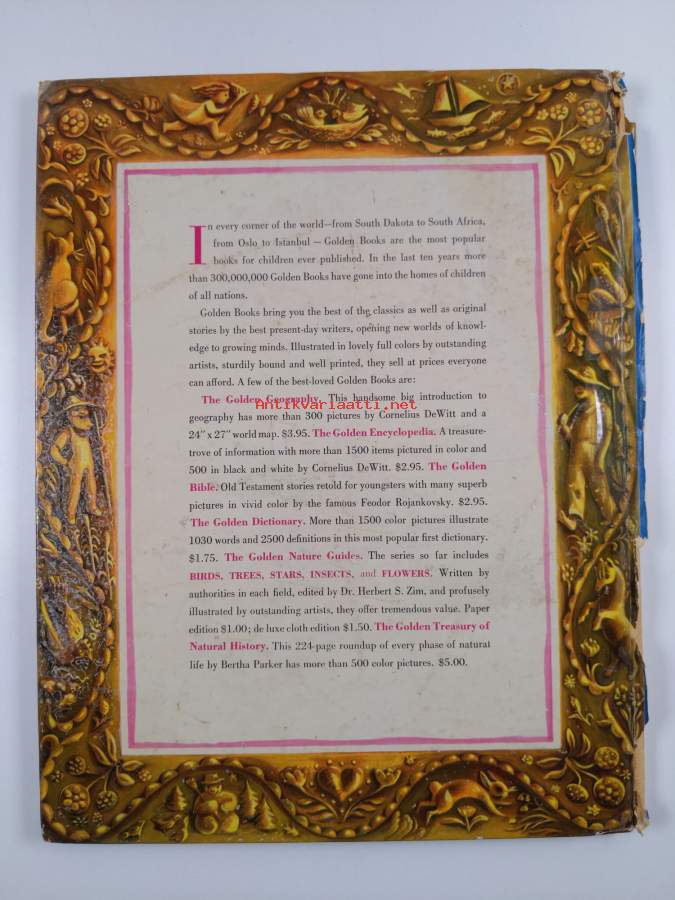 In every corner of the world—from South Dakota to South Africa,
from Oslo to Istanbul — Golden Books are the most popular
books for children ever published. In the last ten years more
than 300,000,000 Golden Books have gone into the homes of children
of all nations.
Golden Books bring you the best of the classics as well as original
stories by the best present-day writers, opening new worlds of knowl-
edge to growing minds. Illustrated in lovely full colors by outstanding
artists, sturdily bound and well printed, they sell at prices everyone
can afford. A few of the best-loved Golden Books are:
The Golden Geography. This handsome big introduction to
Antikvariaatti.net
geography has more than 300 pictures by Cornelius DeWitt and a
24" x 27" world map. $3.95. The Golden Encyclopedia. A treasure-
trove of information with more than 1500 items pictured in color and
500 in black and white by Cornelius DeWitt. $2.95. The Golden
Bible. Old Testament stories retold for youngsters with many superb
pictures in vivid color by the famous Feodor Rojankovsky. $2.95.
The Golden Dictionary. More than 1500 color pictures illustrate
1030 words and 2500 definitions in this most popular first dictionary.
$1.75. The Golden Nature Guides. The series so far includes
BIRDS, TREES, STARS, INSECTS, and FLOWERS. Written by
authorities in each field, edited by Dr. Herbert S. Zim, and profusely
illustrated by outstanding artists, they offer tremendous value. Paper
edition $1.00; de luxe cloth edition $1.50. The Golden Treasury of
Natural History. This 224-page roundup of every phase of natural
life by Bertha Parker has more than 500 color pictures. $5.00.